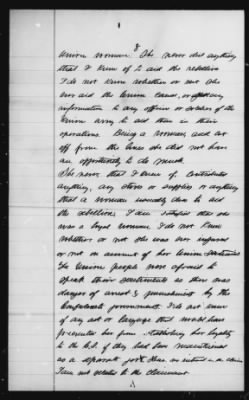 8
Union woman. She never did anything
that I know of to aid the rebellion
I do not know whether or not she
ever aid the Union Cause, or gave any
information to any officer or soldier of the
Union army to aid them in their
operations. Being a woman and cut
off from the lines she did not have
an opportunity to do much.
She never that I knew of contributed
anything, any store or supplies or anything
that a woman usually does to aid
the rebellion. I am satisfied that she
was a loyal woman. I do not know
whether or not she was ever injured
or not on account of her Union sentiments
The Union people were afraid to
speak their sentiments as there was
danger of arrest & punishment by the
Confederate government. I do not know
of any act or language that would have
prevented her from establishing her loyalty
to the U.S. if they had been
as a separate
I am not related to the claimant